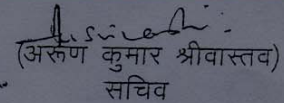 (अरूण कुमार श्रीवास्तव)
सचिव